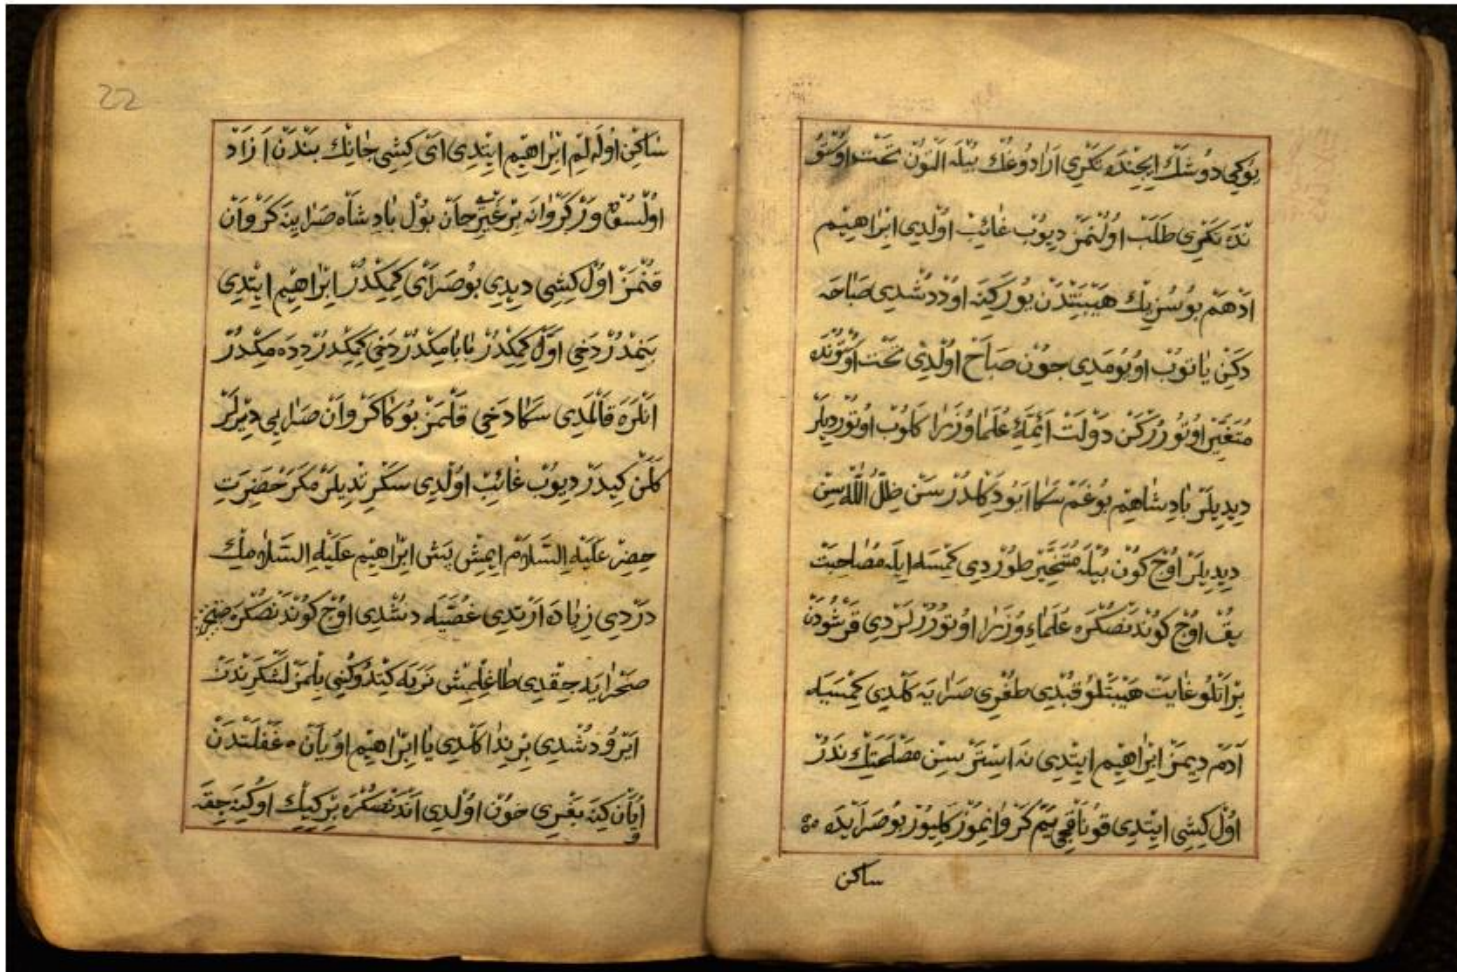 يوكي دوشك ايچنده تكري ارادوغك بيله التون تخت اوستو
نده تكري طلب اولنمز ديوب غائب اولدي ابراهيم
ادهم بو سوزيك هيبتندن يوركنه اود دشدي صباحه
دكن ياتوب اويومدي چون صباح اولدي تخت اوزونده
متغير اوتورركن دولت ائمه علما وزرا كلوب اوتورديلر
ديديلر پادشاهم بو غم سكا ابودكلدر سن ظل الله سن
ديديلر اوچ كون بيله متحير طوردي كمسه ايله مصاحبت
يق اوچ كوندنصكره علماء وزرا اوتورلردي قرشودن
بر اتلو غايت هيبتلو قپدي طغري صرايه كلدي كمسيه
آدم ديمز ابراهيم ايتدي نه استرسن مصلحتك ندر
اول كشي ايتدي قوناقجييم كروانموز كليور بو صرايده
ساكن
22
ساكن اوله لم ابراهيم ايتدي اى كشي جانك بندن ازاد
اولسون ور كروانه بر غيري جان بول پادشاه صراينه كروان
قنمز اول كشي ديدي بو صراى كمكدر ابراهيم ايتدي
بنمدر دخي اول كمكدر بابامكدر دخي كمكدر دده مكدر
انلره قالمدي سكا دخي قلمز بوكا كروان صرايي ديرلر
كلن كيدر ديوب غائب اولدي سكرتديلر مكر حضرت
حضر عليه السلام ايمش پس ابراهيم عليه السلامك
دردي زياده ارتدي غصيه دشدي اوچ كوندنصكره
صحرايه چقدي طاغلمش نريه كتدوكني بلمز لشكرندن
ايرو دشدي بر ندا كلدي يا ابراهيم اويان غفلتدن
اويان كنه بغري خون اولدي اندنصكره بر كييك اوكنه چقه